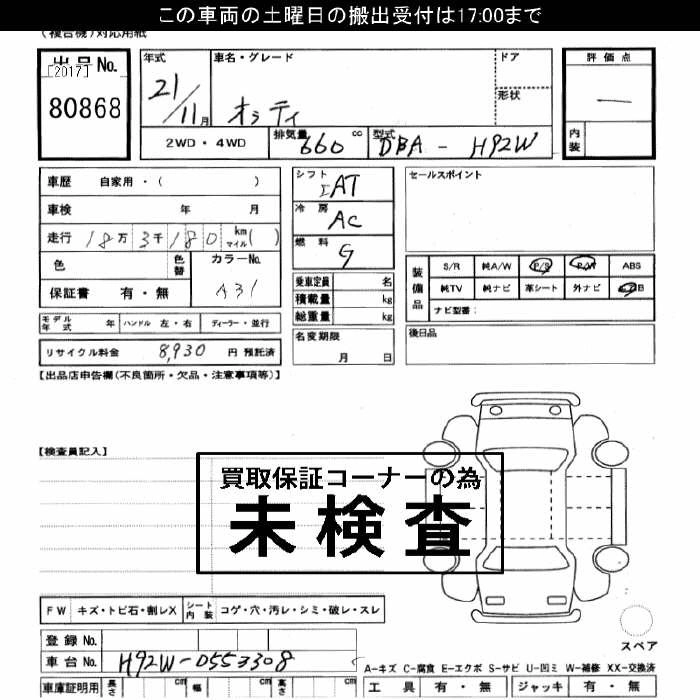 この車両の土曜日の搬出受付は17:00まで
(複合機)対応用紙
出品No.
[2017]
80868
年式
21/11月
車名・グレード
オッティ
ドア
形状
評価点
—
内装
2WD・4WD
排気量 660 cc
型式 DBA - H92W
車歴 自家用・( )
車検 年 月
走行 18万3千180 km マイル( )
色 色替
カラーNo. A31
保証書 有・無
シフト IAT
冷房 AC
燃料 G
乗車定員 名
積載量 kg
総重量 kg
セールスポイント
装備品
S/R 純A/W P/S P/W ABS
純TV 純ナビ 革シート 外ナビ
ナビ型番:
モデル年式 年 ハンドル 左・右 ディーラー・並行
名変期限
月 日
後日品
リサイクル料金 8,930 円 預託済
【出品店申告欄(不良箇所・欠品・注意事項等)】
【検査員記入】
買取保証コーナーの為
未検査
FW キズ・トビ石・割レX シート内装 コゲ・穴・汚レ・シミ・破レ・スレ
スペア
登録No.
車台No. H92W-0553308
A-キズ C-腐食 E-エクボ S-サビ U-凹ミ W-補修 XX-交換済
車庫証明用 長さ cm 幅 cm 高さ cm
工具 有・無 ジャッキ 有・無